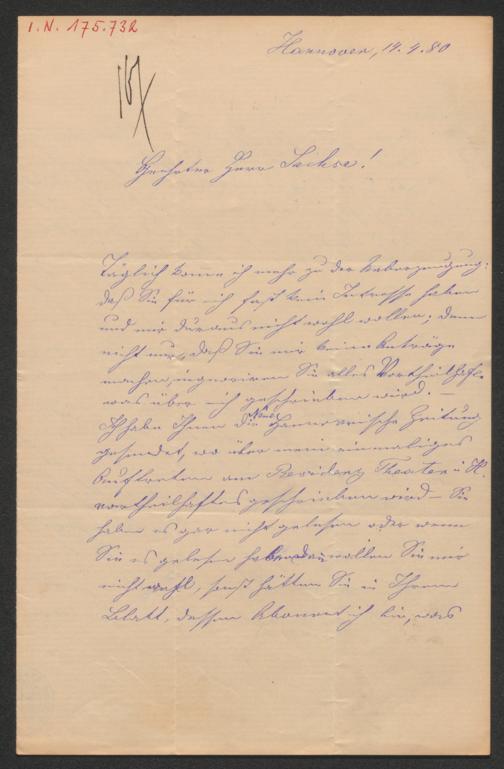 I.N. 175.732
Hannover, 14.4.80
Geehrter Herr Sachse!
Täglich komme ich mehr zu der Ueberzeugung:
daß Sie für mich fast kein Intresse haben
und mir duraus nicht wohl wollen; denn
nicht nur, daß Sie mir keine Anträge
machen, ignoriren Sie alles Vortheilhafte
was über mich geschrieben wird. –
Ich habe Ihnen die Neue Hannoverische Zeitung
gesendet, wo über mein einmaliges
Auftreten am Residenz Theater in H.
vortheilhaftes geschrieben wird – Sie
haben es gar nicht gelesen oder wenn
Sie es gelesen haben, dann wollen Sie mir
nicht wohl, sonst hätten Sie in Ihrem
Blatt, dessen Abonnent ich bin, was